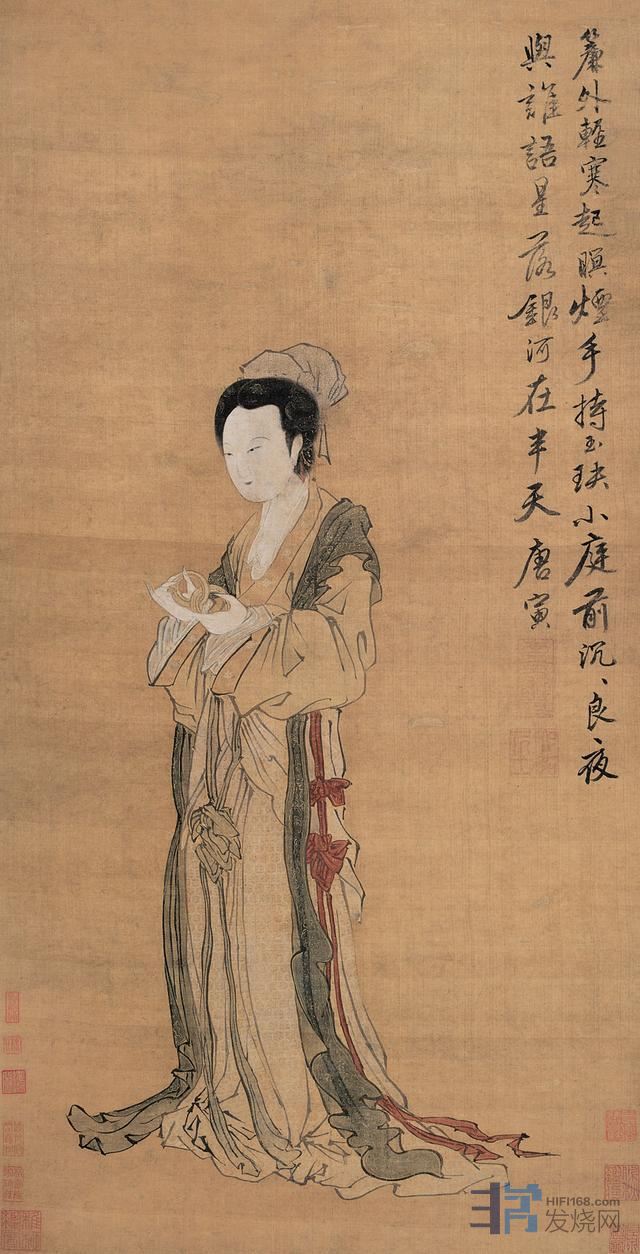 簾外輕寒起暝煙手持玉玦小庭前沉、良夜
與誰語星落銀河在半天唐寅
HIFI168.com
发烧网